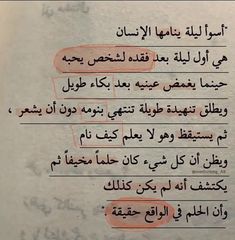 "أسوأ ليلة ينامها الإنسان
هي أول ليلة بعد فقده لشخص يحبه
حينما يغمض عينيه بعد بكاء طويل
ويطلق تنهيدة طويلة تنتهي بنومه دون أن يشعر ،
ثم يستيقظ وهو لا يعلم كيف نام
ويظن أن كل شيء كان حلماً مخيفاً ثم
يكتشف أنه لم يكن كذلك
وأن الحلم في الواقع حقيقة ."